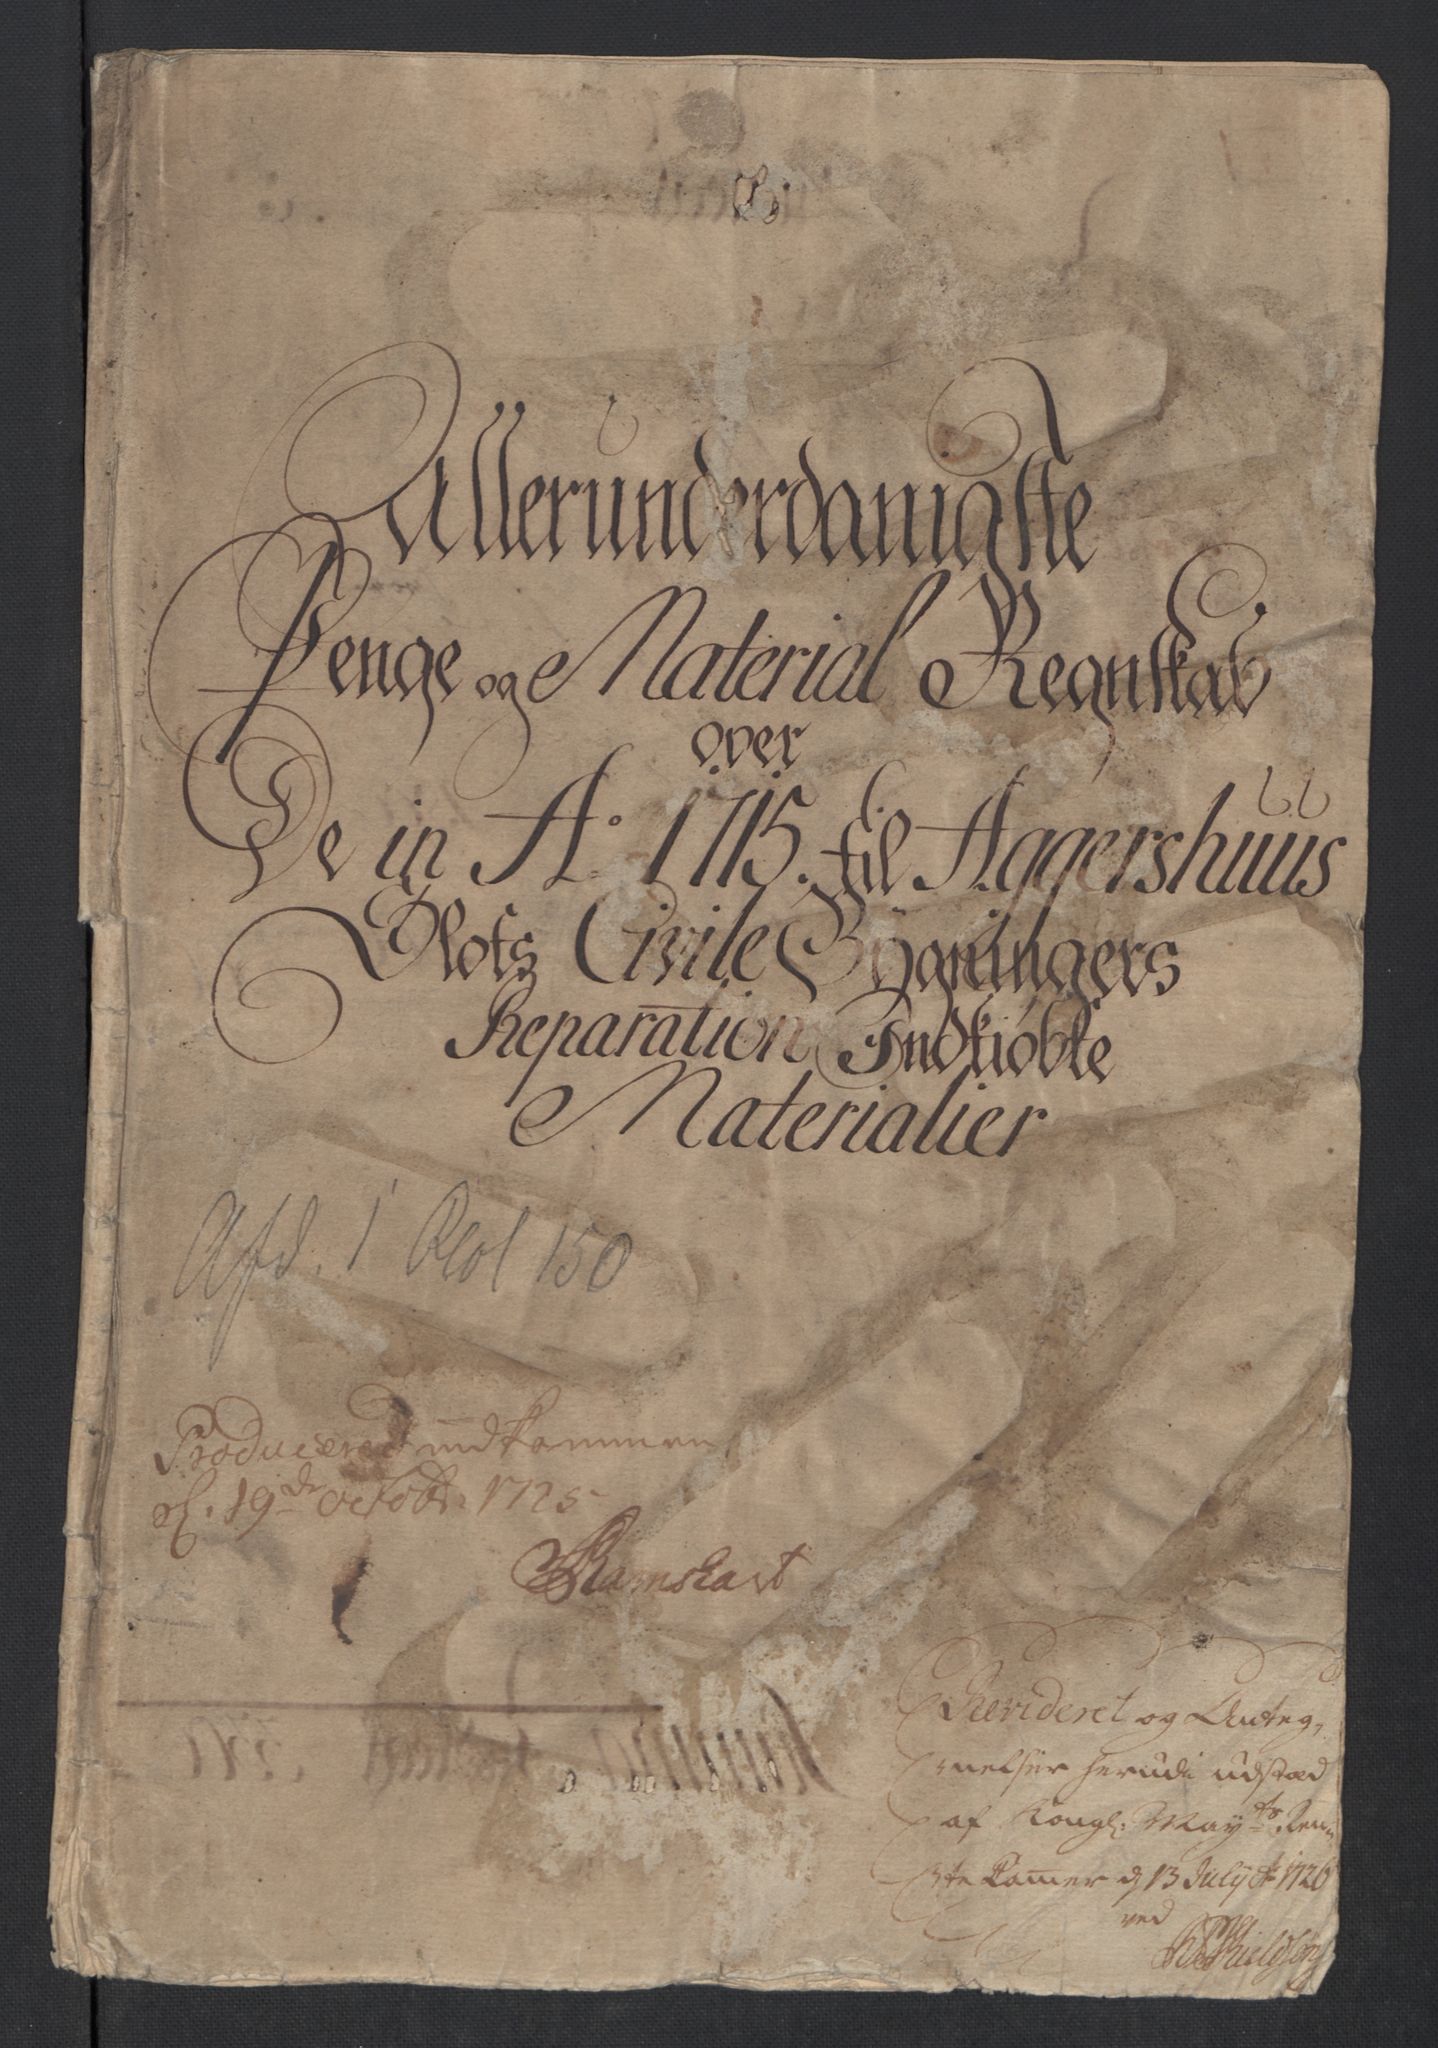 Allerunderdanigste
Penge og Material Regnskab
over
De in A: 1715. til Aggershüüs
Slots Civile Bÿgningers
Reparation Indkiøbte
Materialier
Afd. 1 Rol 150
Produceret indkommen
d. 19de octobr: 1725
Ramshart
Revideret og Anteg,
nelser herudi udstæd
af Kongl: Mayts Ren,
te Kamer d 13 July Ao 1726
ved